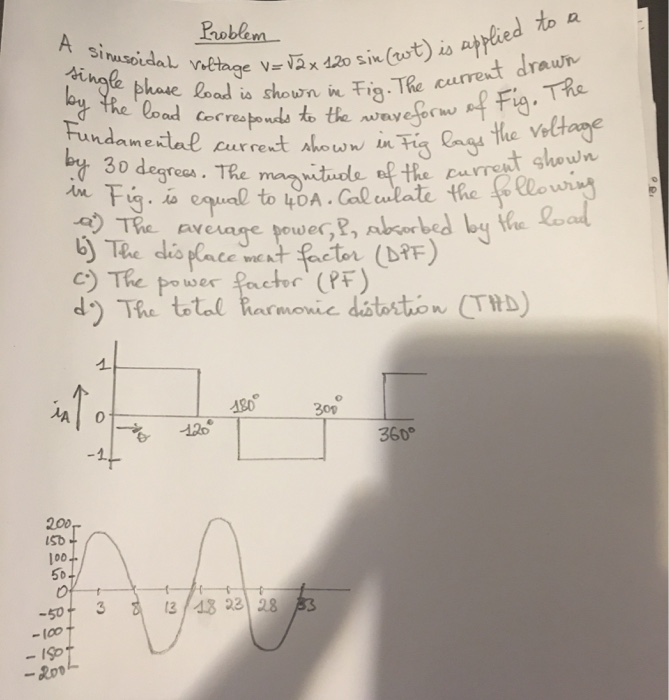 Problem
A sinusoidal voltage V=√2 x 120 sin(wt) is applied to a
single phase load is shown in Fig. The current drawn
by the load corresponds to the waveform of Fig. The
Fundamental current shown in Fig lags the voltage
by 30 degrees. The magnitude of the current shown
in Fig. is equal to 40A. Calculate the following
a) The average power, P, absorbed by the load
b) The displacement factor (DPF)
c) The power factor (PF)
d) The total harmonic distortion (THD)
1
iA ↑ 0
-1
θ
120°
180°
300°
360°
200
150
100
50
0
-50
-100
-150
-200
3 8 13 18 23 28 33